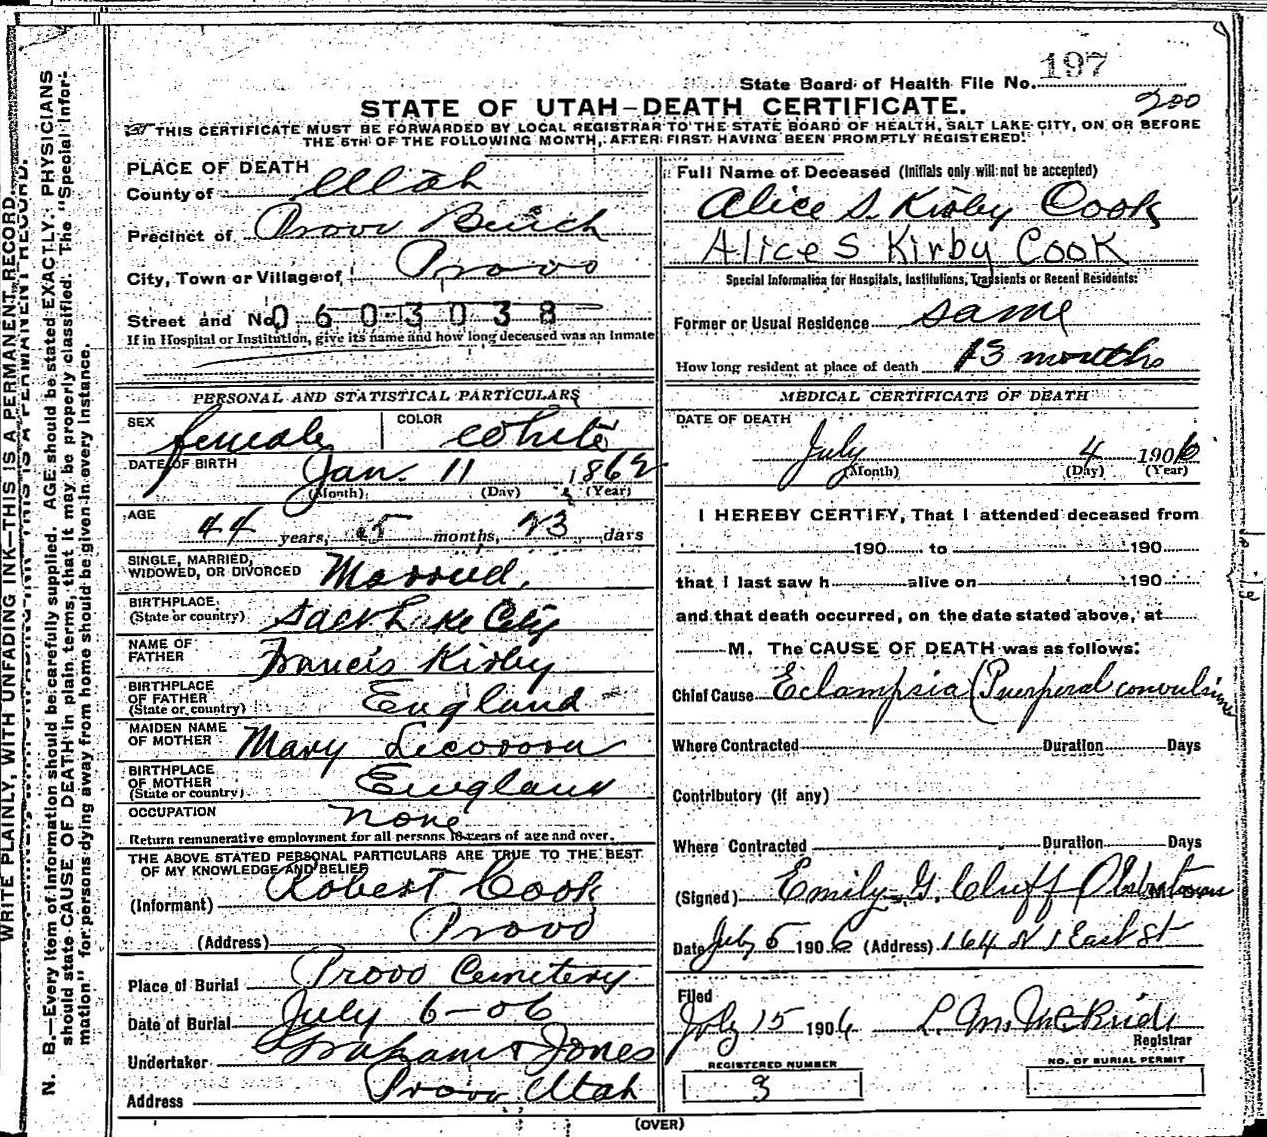 WRITE PLAINLY, WITH UNFADING INK—THIS IS A PERMANENT RECORD.
N. B.—Every item of information should be carefully supplied. AGE should be stated EXACTLY. PHYSICIANS
should state CAUSE OF DEATH in plain terms, that it may be properly classified. The "Special Infor-
mation" for persons dying away from home should be given in every instance.
State Board of Health File No. 197
200
STATE OF UTAH—DEATH CERTIFICATE.
THIS CERTIFICATE MUST BE FORWARDED BY LOCAL REGISTRAR TO THE STATE BOARD OF HEALTH, SALT LAKE CITY, ON OR BEFORE
THE 5TH OF THE FOLLOWING MONTH, AFTER FIRST HAVING BEEN PROMPTLY REGISTERED.
PLACE OF DEATH
County of Utah
Precinct of Provo Bench
City, Town or Village of Provo
Street and No. 0603038
If in Hospital or Institution, give its name and how long deceased was an Inmate
PERSONAL AND STATISTICAL PARTICULARS
SEX female COLOR White
DATE OF BIRTH Jan. 11 1862
(Month) (Day) (Year)
AGE 44 years, 5 months, 23 days
SINGLE, MARRIED,
WIDOWED, OR DIVORCED Married.
BIRTHPLACE,
(State or country) Salt Lake City
NAME OF
FATHER Francis Kirby
BIRTHPLACE
OF FATHER
(State or country) England
MAIDEN NAME
OF MOTHER Mary
BIRTHPLACE
OF MOTHER
(State or country) England
OCCUPATION none
Return remunerative employment for all persons 10 years of age and over.
THE ABOVE STATED PERSONAL PARTICULARS ARE TRUE TO THE BEST
OF MY KNOWLEDGE AND BELIEF
(Informant) Robert Cook
(Address) Provo
Place of Burial Provo Cemetery
Date of Burial July 6-06
Undertaker Graham & Jones
Address Provo Utah
Full Name of Deceased (Initials only will not be accepted)
Alice S. Kirby Cook
Alice S Kirby Cook
Special Information for Hospitals, Institutions, Transients or Recent Residents:
Former or Usual Residence same
How long resident at place of death 13 months
MEDICAL CERTIFICATE OF DEATH
DATE OF DEATH
July 4 1906
(Month) (Day) (Year)
I HEREBY CERTIFY, That I attended deceased from
190 to 190
that I last saw h alive on 190
and that death occurred, on the date stated above, at
M. The CAUSE OF DEATH was as follows:
Chief Cause Eclampsia (Puerperal convulsions
Where Contracted Duration Days
Contributory (if any)
Where Contracted Duration Days
(Signed) Emily G. Cluff
Date July 5 1906 (Address) 164 N 1 East St
Filed
July 15 1906 L. M. McBride
Registrar
REGISTERED NUMBER
3
NO. OF BURIAL PERMIT
(OVER)